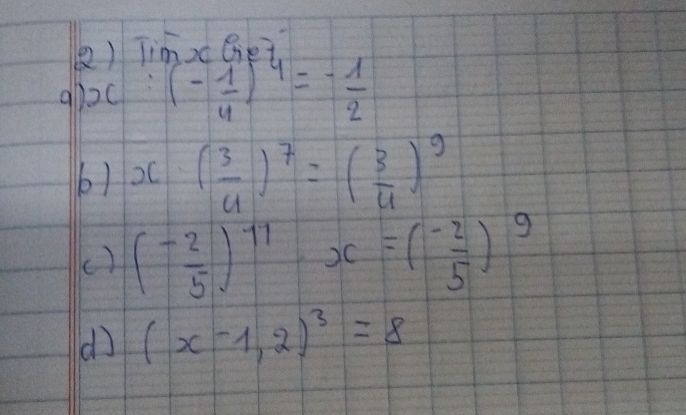 2) Tìm x biết
a) x : (-1/4)^4 = -1/2
b) x · (3/4)^7 = (3/4)^9
c) (-2/5)^11 x = (-2/5)^9
d) (x - 1,2)^3 = 8